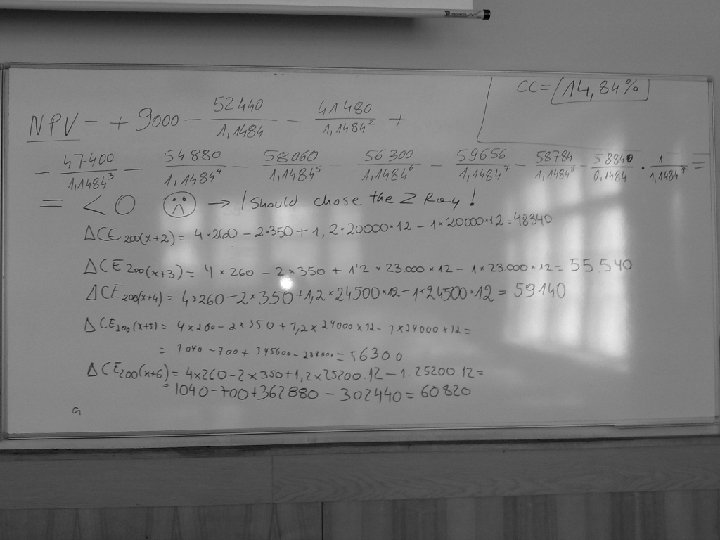 CC = 14,84%
NPV = + 9000 - 52440/1,1484 - 41480/1,1484² +
- 47400/1,1484³ - 54880/1,1484⁴ - 58060/1,1484⁵ - 56300/1,1484⁶ - 59656/1,1484⁷ - 58784/1,1484⁸ - 58840/0,1484 · 1/1,1484⁸ =
= < 0 ☹ → I should chose the Z Ray!
ΔCE200(x+2) = 4×260 - 2×350 + 1,2×20000×12 - 1×20000×12 = 48340
ΔCE200(x+3) = 4×260 - 2×350 + 1'2×23.000×12 - 1×23.000×12 = 55.540
ΔCE200(x+4) = 4×260 - 2×350 + 1,2×24500×12 - 1×24500×12 = 59140
ΔCE200(x+5) = 4×260 - 2×350 + 1,2×24000×12 - 1×24000×12 =
= 1040 - 700 + 345600 - 288000 = 56300
ΔCE200(x+6) = 4×260 - 2×350 + 1,2×25200·12 - 1·25200·12 =
= 1040 - 700 + 362880 - 302440 = 60820